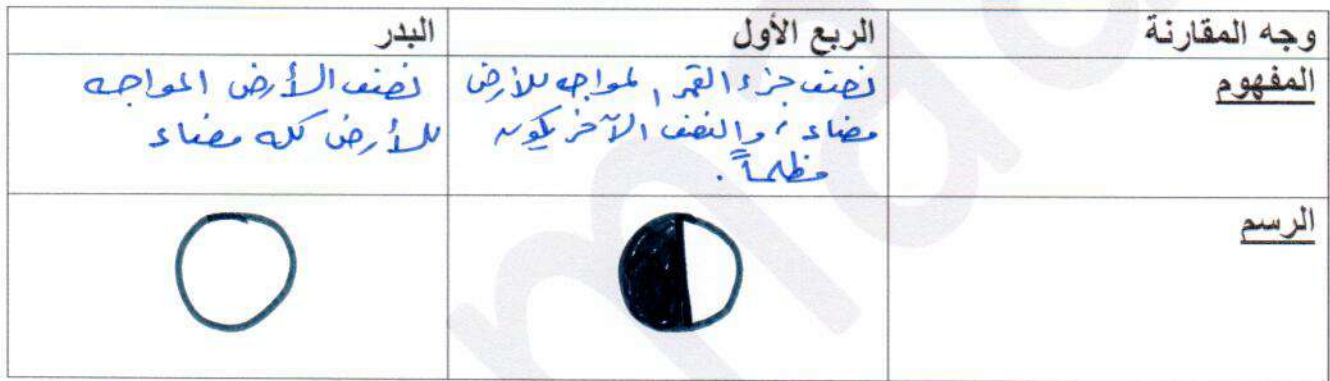 وجه المقارنة الربع الأول البدر
المفهوم
نصف جزء القمر المواجه للأرض
مضاء ، والنصف الآخر يكون
مظلماً .
نصف الأرض المواجه
للأرض كله مضاء
الرسم